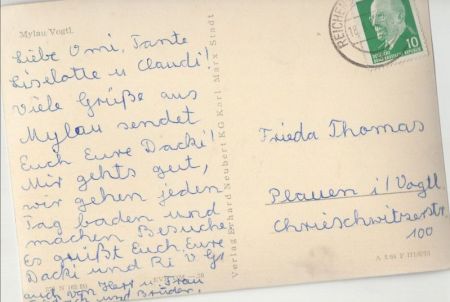 Mylau Vogtl.
Liebe Omi, Tante
Liselotte u Claudi!
Viele Grüße aus
Mylau sendet
Euch Eure Dacki!
Mir gehts gut,
wir gehen jeden
Tag baden und
machen Besuche
Es grüßt Euch Eure
Dacki und
auch von Frau
und Bruder.
Verlag Erhard Neubert KG Karl-Marx-Stadt
REICHEN
10
Frieda Thomas
Plauen i/Vogtl
Chrieschwitzerstr
100